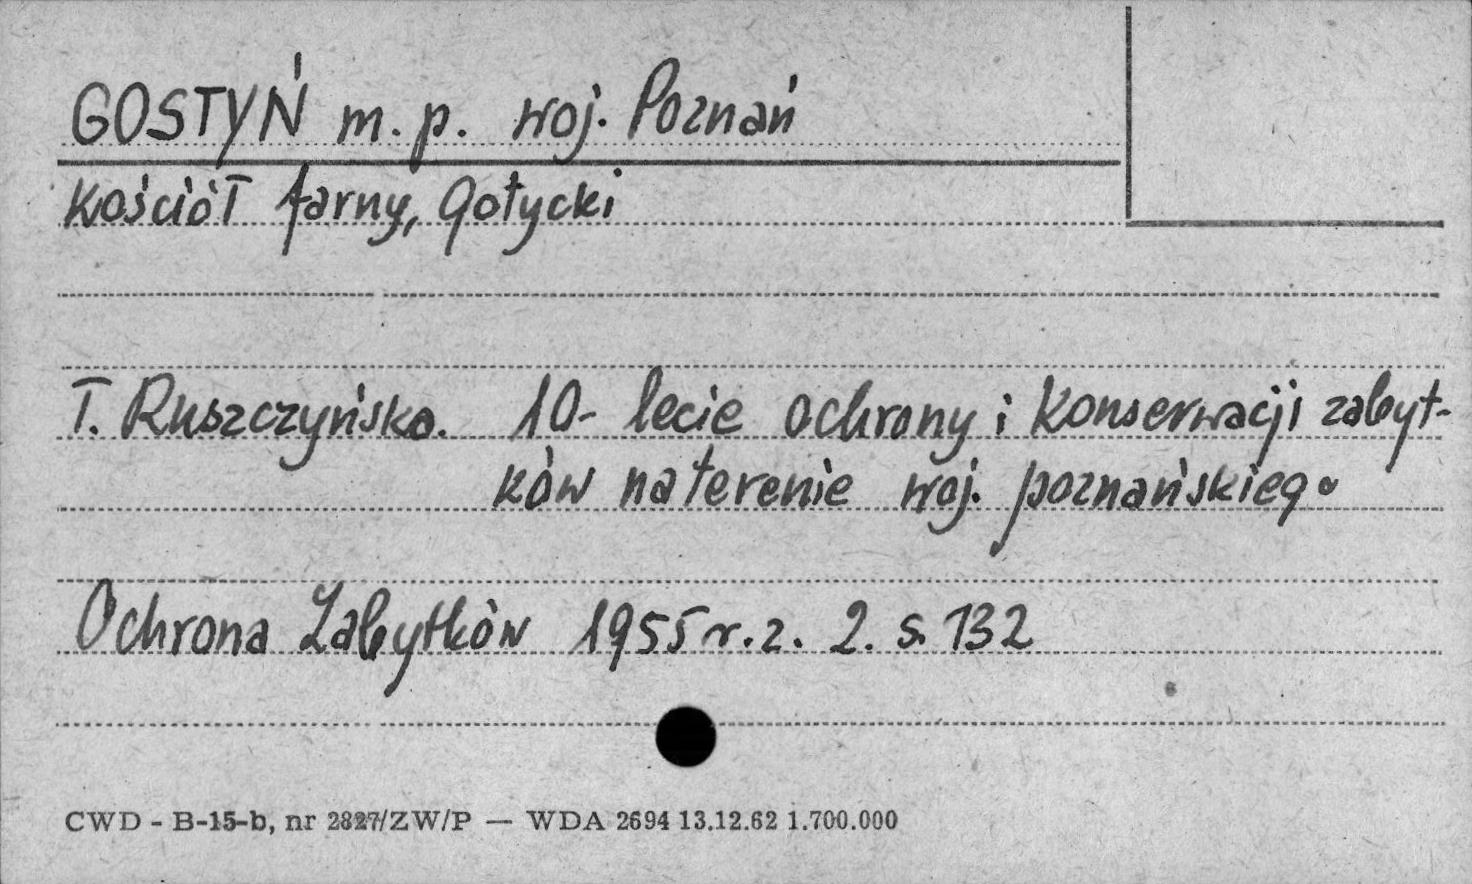 GOSTYŃ m. p. woj. Poznań
Kościół farny, gotycki
T. Ruszczyńska. 10-lecie ochrony i konserwacji zabyt-
ków na terenie woj. poznańskiego
Ochrona Zabytków 1955 r. z. 2. s. 132
CWD - B-15-b, nr 2827/ZW/P — WDA 2694 13.12.62 1.700.000